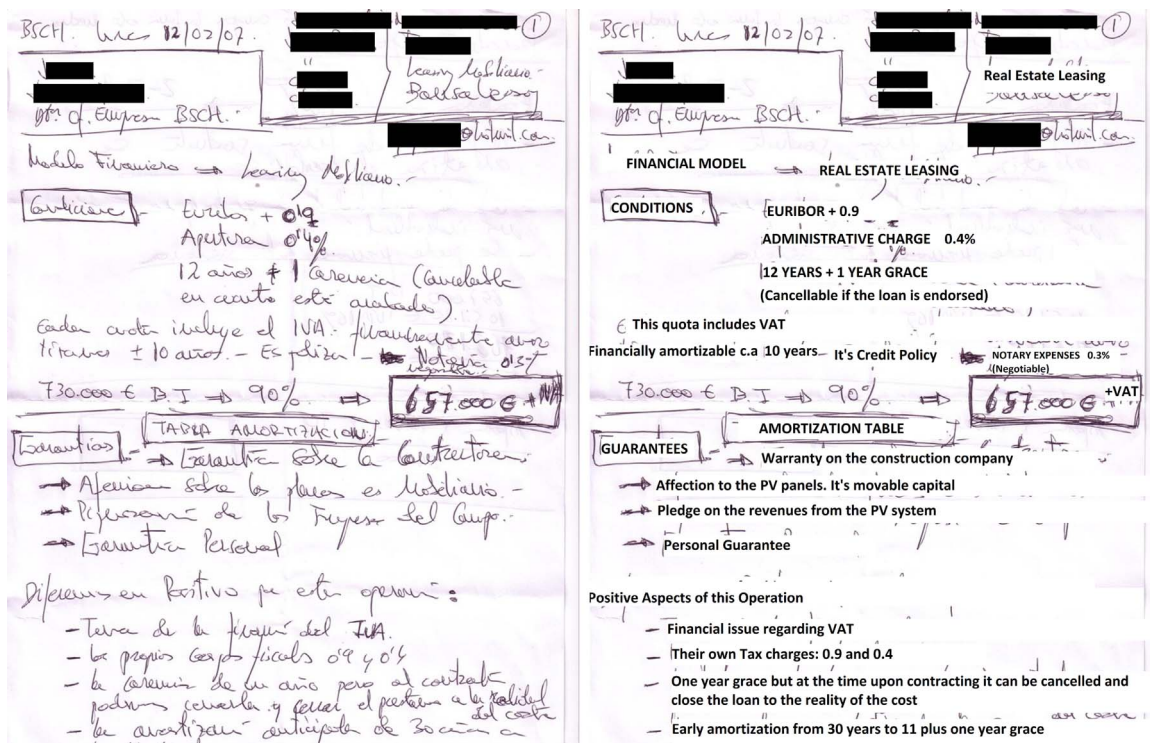 BSCH. 12/02/07.
①
Leasing Mobiliario.-
Empresa BSCH.-
@hotmail.com
Modelo Financiero ⇒ Leasing Mobiliario.-
Euribor + 0'9
Apertura 0'4%
12 años + 1 Carencia (Cancelable
en cuanto esté acabado).
Cada cuota incluye el IVA. financieramente
± 10 años.- Es poliza - Notaria 0'3
730.000 € B.I ⇒ 90% ⇒ 657.000 € + IVA
TABLA AMORTIZACION
Garantias - ⇒ Garantia sobre la Constructora.
→ sobre las placas es Mobiliario.-
→ Pignoración de los Ingresos del Campo.-
→ Garantia Personal
en Positivo de esta operación:
- Tema de la del IVA.
- los propios 0'9 y 0'4
- la carencia de un año pero al
podemos cerrarla y cerrar el prestamo a la realidad
del coste
- la anticipada de 30 a
BSCH. 12/02/07.
①
Real Estate Leasing
Empresa BSCH.-
@hotmail.com
FINANCIAL MODEL ⇒ REAL ESTATE LEASING
CONDITIONS
EURIBOR + 0.9
ADMINISTRATIVE CHARGE 0.4%
12 YEARS + 1 YEAR GRACE
(Cancellable if the loan is endorsed)
This quota includes VAT
Financially amortizable c.a 10 years - It's Credit Policy NOTARY EXPENSES 0.3%
(Negotiable)
730.000 € B.I ⇒ 90% ⇒ 657.000 € +VAT
AMORTIZATION TABLE
GUARANTEES
⇒ Warranty on the construction company
→ Affection to the PV panels. It's movable capital
→ Pledge on the revenues from the PV system
→ Personal Guarantee
Positive Aspects of this Operation
- Financial issue regarding VAT
- Their own Tax charges: 0.9 and 0.4
- One year grace but at the time upon contracting it can be cancelled and
close the loan to the reality of the cost
- Early amortization from 30 years to 11 plus one year grace